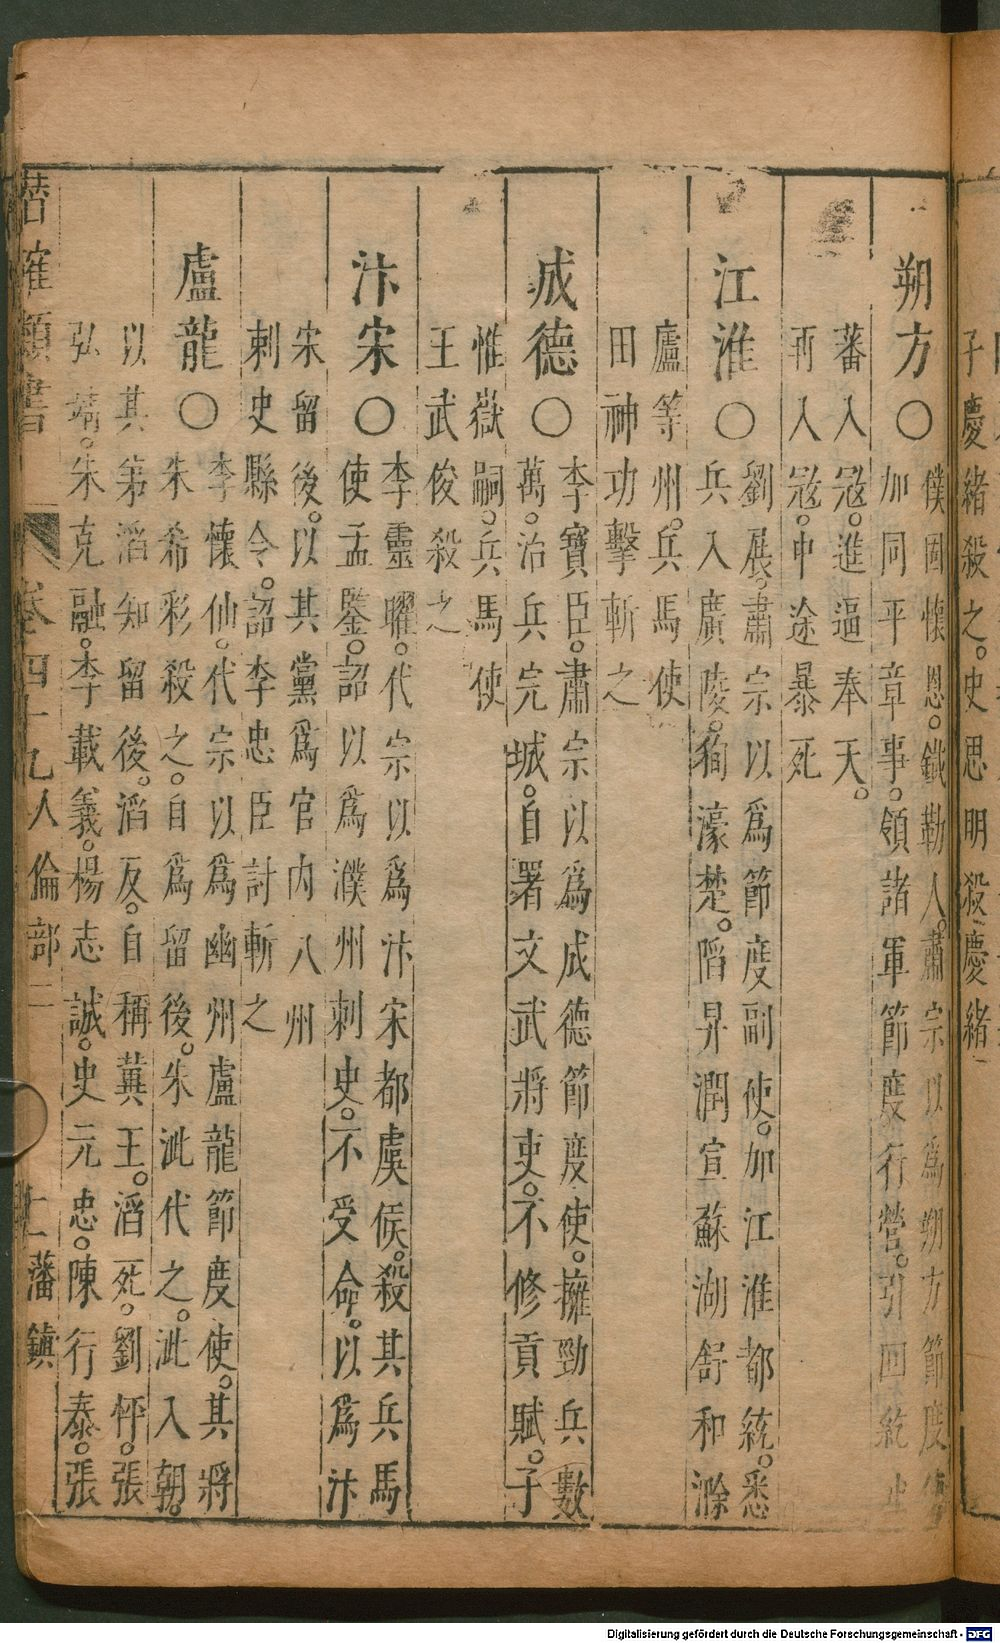 子慶緒殺之。史思明殺慶緒
朔方〇
僕固懷恩。鐵勒人。肅宗以爲朔方節度使
加同平章事。領諸軍節度行營。引回紇
蕃入寇。進逼奉天。
再入寇。中途暴死
江淮〇
劉展。肅宗以爲節度副使。加江淮都統。悉
兵入廣陵。狥濠楚。陷昇潤宣蘇湖舒和滁
廬等州。兵馬使
田神功擊斬之
成德〇
李寶臣。肅宗以爲成德節度使。擁勁兵數
萬。治兵完城。自署文武將吏。不修貢賦。子
惟嶽嗣。兵馬使
王武俊殺之
汴宋〇
李靈曜。代宗以爲汴宋都虞侯。殺其兵馬
使孟鑒。詔以爲濮州刺史。不受命。以爲汴
宋留後。以其黨爲官内八州
刺史縣令。詔李忠臣討斬之
盧龍〇
李懷仙。代宗以爲幽州盧龍節度使。其將
朱希彩殺之。自爲留後。朱泚代之。泚入朝。
以其第滔知留後。滔反。自稱冀王。滔死。劉怦。張
弘靖。朱克融。李載義。楊志誠。史元忠。陳行泰。張
潛確類書 卷四十九人倫部二 藩鎮
Digitalisierung gefördert durch die Deutsche Forschungsgemeinschaft - DFG